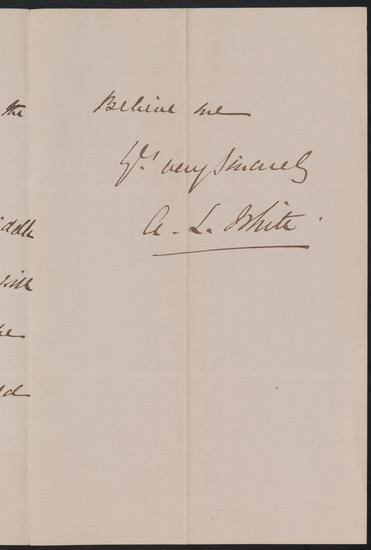 the
Believe me
Yrs very sincerely
iddle
A. L. White.
will
he
d